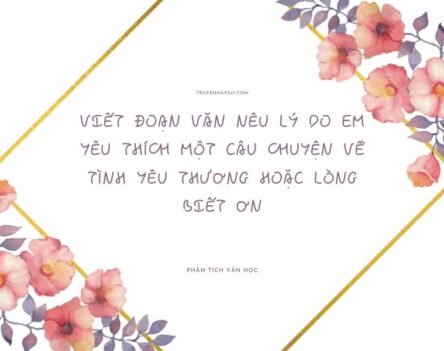 TRUYENHAY247.COM
VIẾT ĐOẠN VĂN NÊU LÝ DO EM
YÊU THÍCH MỘT CÂU CHUYỆN VỀ
TÌNH YÊU THƯƠNG HOẶC LÒNG
BIẾT ƠN
PHÂN TÍCH VĂN HỌC